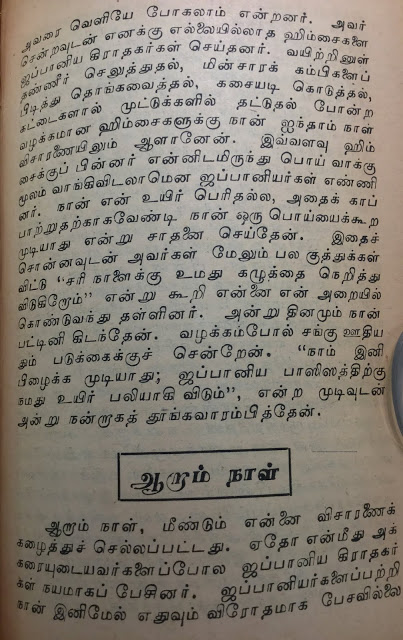 அவரை வெளியே போகலாம் என்றனர். அவர்
சென்றவுடன் எனக்கு எல்லையில்லாத ஹிம்சைகளை
ஜப்பானிய கிராதகர்கள் செய்தனர். வயிற்றினுள்
தண்ணீர் செலுத்துதல், மின்சாரக் கம்பிகளைப்
பிடித்து தொங்கவைத்தல், கசையடி கொடுத்தல்,
கட்டைகளால் முட்டுக்களில் தட்டுதல் போன்ற
வழக்கமான ஹிம்சைகளுக்கு நான் ஐந்தாம் நாள்
விசாரணையிலும் ஆளானேன். இவ்வளவு ஹிம்
சைக்குப் பின்னர் என்னிடமிருந்து பொய் வாக்கு
மூலம் வாங்கிவிடலாமென ஜப்பானியர்கள் எண்ணி
னர். நான் என் உயிர் பெரிதல்ல, அதைக் காப்
பாற்றுதற்காகவேண்டி நான் ஒரு பொய்யைக்கூற
முடியாது என்று சாதனை செய்தேன். இதைச்
சொன்னவுடன் அவர்கள் மேலும் பல குத்துக்கள்
விட்டு "சரி நாளைக்கு உமது கழுத்தை நெறித்து
விடுகிறோம்" என்று கூறி என்னை என் அறையில்
கொண்டுவந்து தள்ளினர். அன்று தினமும் நான்
பட்டினி கிடந்தேன். வழக்கம்போல் சங்கு ஊதிய
தும் படுக்கைக்குச் சென்றேன். "நாம் இனி
பிழைக்க முடியாது; ஜப்பானிய பாஸிஸத்திற்கு
நமது உயிர் பலியாகி விடும்", என்ற முடிவுடன்
அன்று நன்றாகத் தூங்கவாரம்பித்தேன்.
ஆறாம் நாள்
ஆறாம் நாள், மீண்டும் என்னை விசாரணைக்
கழைத்துச் செல்லப்பட்டது. ஏதோ என்மீது அக்
கரையுடையவர்களைப்போல ஜப்பானிய கிராதகர்
கள் நயமாகப் பேசினர். ஜப்பானியர்களைப்பற்றி
நான் இனிமேல் எதுவும் விரோதமாக பேசவில்லை